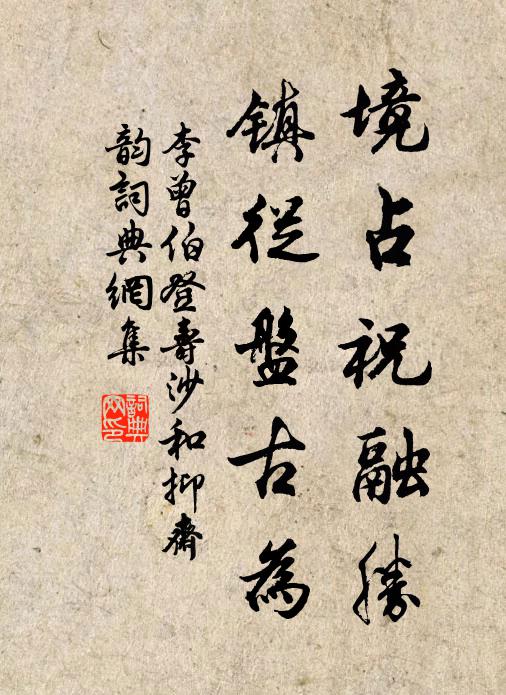 境占祝融勝
鎮從盤古為
李曾伯登壽沙和抑齋
韵詞典網集
詞典網印